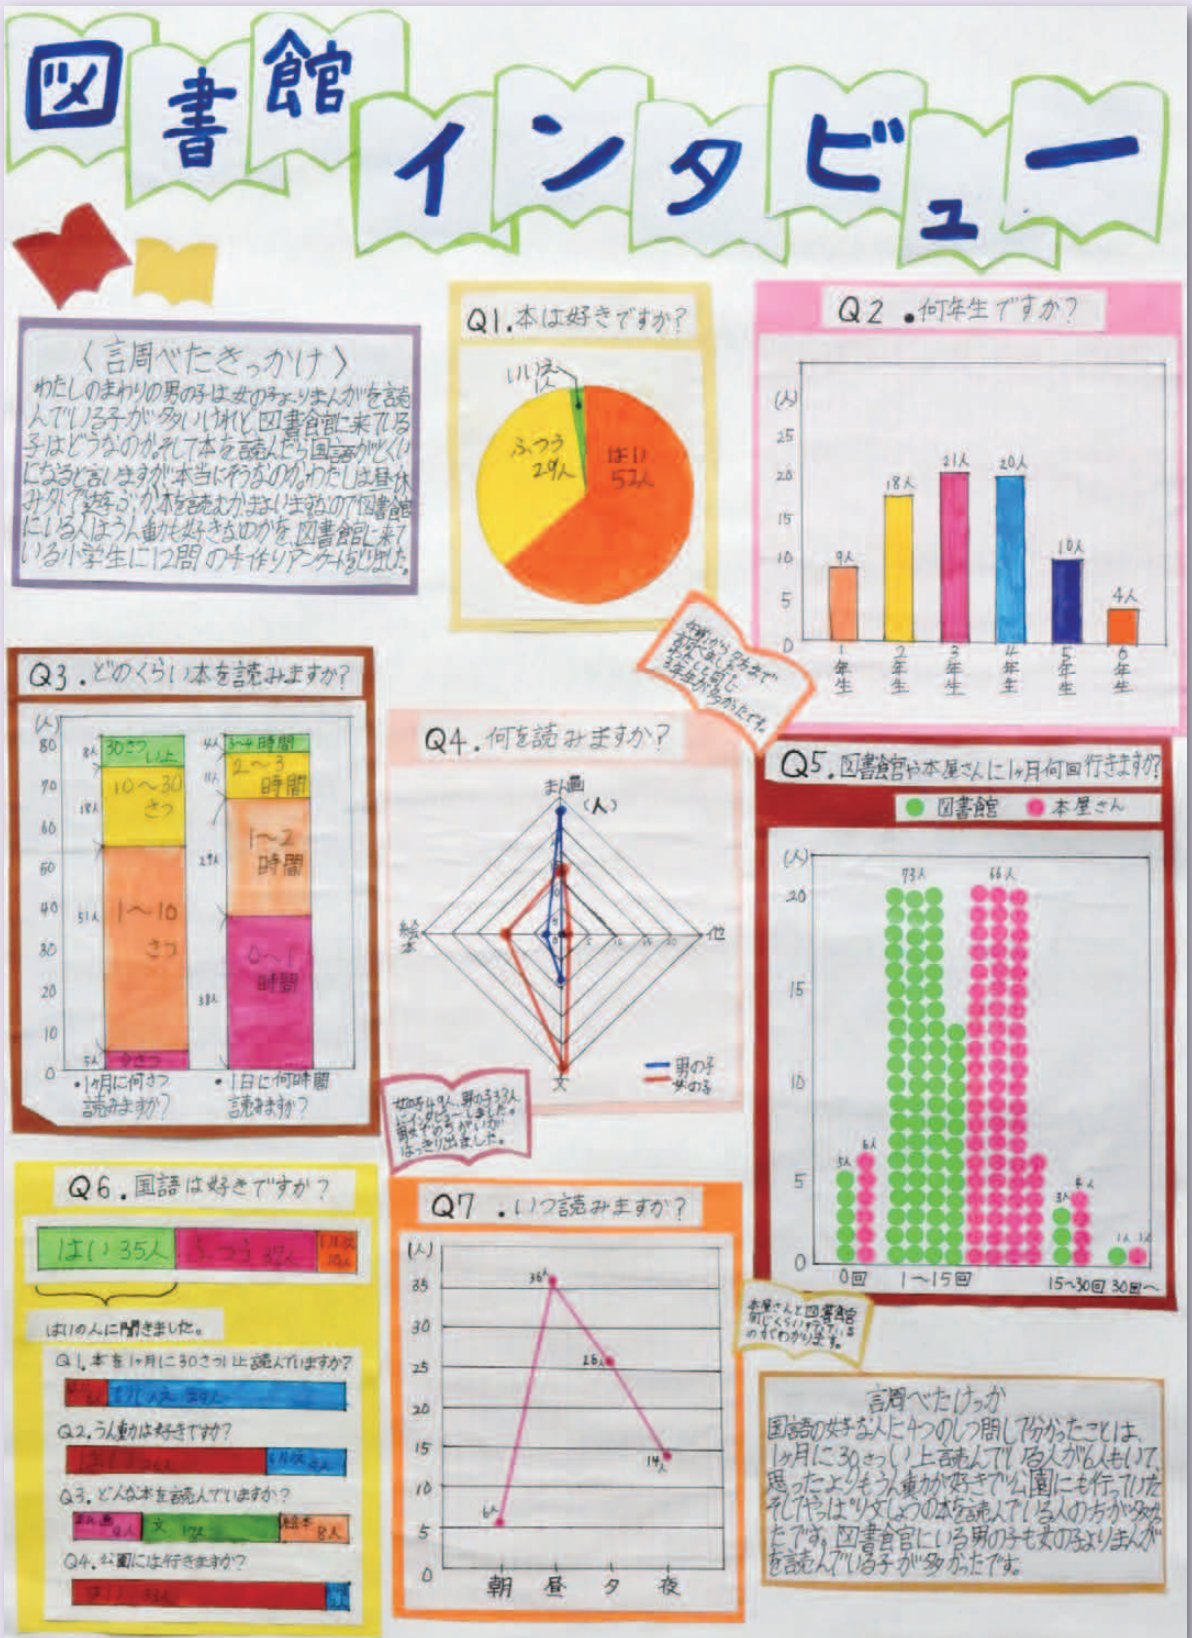 図書館
インタビュー
〈調べたきっかけ〉
わたしのまわりの男の子は女の子よりまんがを読
んでいる子が多いけれど、図書館に来ている
子はどうなのか。そして本を読んだら国語がとくい
になると言いますが本当にそうなのか。わたしは昼休
み外で遊ぶか、本を読むかまよいますなので図書館
にいる人はうん動も好きなのかを、図書館に来て
いる小学生に12問の手作りアンケートをとりました。
Q1.本は好きですか?
いいえ
1人
ふつう
29人
はい
52人
Q2.何年生ですか?
(人)
25
20
15
10
5
0
9人
18人
21人
20人
10人
4人
1年生
2年生
3年生
4年生
5年生
6年生
午前から夕方まで
調べました。
わたしと同じ
3年生が多かったです。
Q3.どのくらい本を読みますか?
(人)
80
70
60
50
40
30
20
10
0
8人
30さつい上
18人
10〜30
さつ
51人
1〜10
さつ
5人
0さつ
4人
3〜4時間
11人
2〜3
時間
29人
1〜2
時間
38人
0〜1
時間
・1ヶ月に何さつ
読みますか?
・1日に何時間
読みますか?
Q4.何を読みますか?
まん画
(人)
絵本
他
文
0
5
10
15
20
男の子
女の子
女の子49人、男の子33人
にインタビューしました。
男女でのちがいが
はっきり出ました。
Q5.図書館や本屋さんに1ヶ月何回行きますか?
図書館
本屋さん
(人)
20
15
10
5
0
5人
6人
73人
66人
3人
4人
1人
1人
0回
1〜15回
15〜30回
30回〜
本屋さんと図書館
同じくらい行っている
のがわかります。
Q6.国語は好きですか?
はい 35人
ふつう 37人
いいえ
10人
はいの人に聞きました。
Q1.本を1ヶ月に30さつい上読んでいますか?
はい
6人
いいえ 29人
Q2.うん動は好きですか?
はい
いいえ
Q3.どんな本を読んでいますか?
まん画
文
絵本
8人
Q4.公園には行きますか?
はい
Q7.いつ読みますか?
(人)
35
30
25
20
15
10
5
0
6人
36人
26人
14人
朝
昼
夕
夜
調べたけっか
国語の好きな人に4つのしつ問して分かったことは、
1ヶ月に30さつい上読んでいる人が6人もいて、
思ったよりもうん動が好きで公園にも行っていた
そしてやっぱり文しょうの本を読んでいる人の方が多か
たです。図書館にいる男の子も女の子よりまんが
を読んでいる子が多かったです。